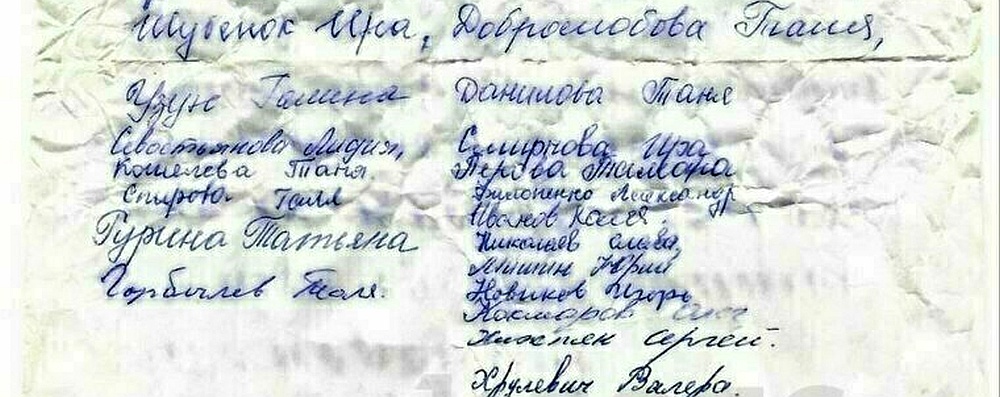 Шубенок Ира, Добромобова Таня,
Узун Галина
Севастьянова Лидия,
Кошелева Таня
Спирова Галя
Гурина Татьяна
Горбачев Толя.
Данилова Таня
Смирнова Ира
Перова Тамара
Филопенко Александр
Иванов Коля.
Николаев Слава,
Мишин Юрий
Новиков Игорь
Сергей.
Хрулевич Валера.